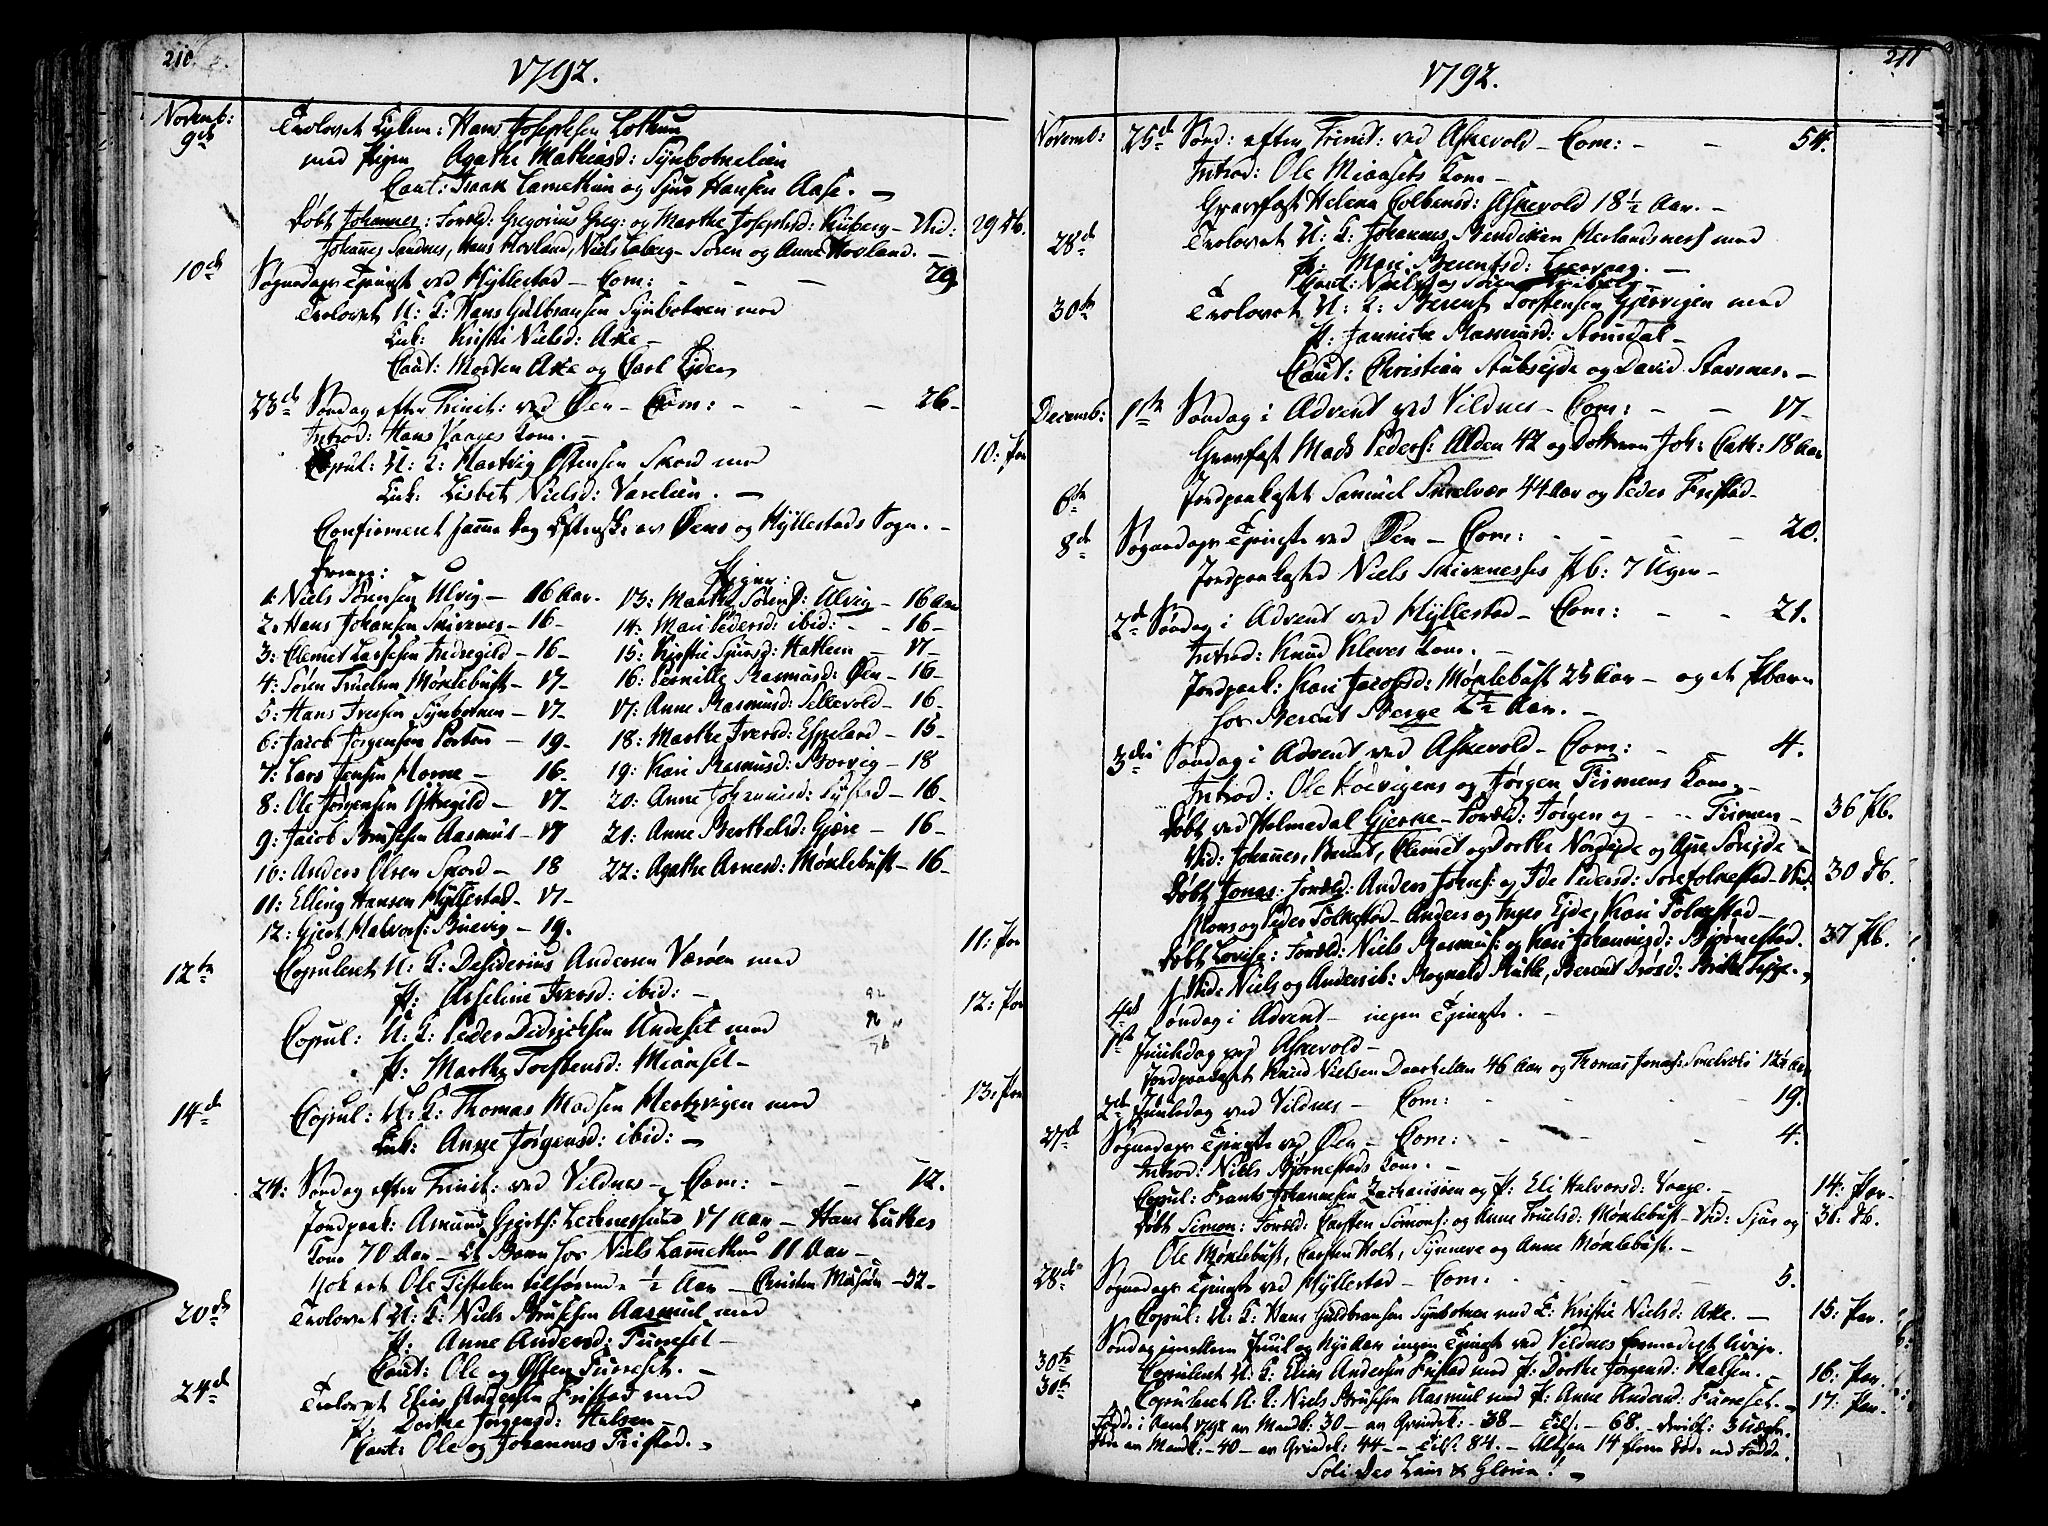 210
1792.
Novemb:
9de Trolovet Enkem: Hans Josephsen Lothun
med Pigen Agathe Mathiasd: Synbotnelien
Caut: Isaak Lamethun og Sjur Hansen Aase.
Døbt Johannes: Foræld: Gregorius Greg: og Marthe Josephsd: Kyberg - Vid: 29 Db.
Johannes Sandnes, Hans Hovland, Niels Loberg - Søren og Anne Hovland.
10de Søgnedags Tieniste ved Hyllestad - Com: - - - 29
Trolovet U: K: Hans Gulbransen Synbotnen med
Enk: Kristi Nielsd: Ake -
Caut: Morten Ake og Carl Eyden
23de Søndag efter Trinit: ved Øen - Com: - - - 26-
Introd: Hans Vaages Kone. -
Copul: U: K: Hartvig Østensen Skord med 10: Par
Enk: Lisbet Nielsd: Varelien. -
Confirmeret samme Dag Eftersk: av Øens og Hyllestads Sogn. -
Drenge: Piger:
1: Niels Sørensen Ulvig - 16 Aar. 13: Marthe Sørensd: Ulvig - 16 Aar
2. Hans Johansen Skivenes - 16 - 14: Mari Pedersd: ibid: - - 16 -
3: Clemet Larsesen Fredregild - 16 - 15: Kirstie Sjursd: Hatlem - 17 -
4: Søren Truelsen Møklebust - 17 - 16: Pernille Rasmusd: Øen - 16 -
5: Hans Iversen Synbotnen - 17 - 17: Anne Rasmusd: Sellevold - 16 -
6: Jacob Jørgensen Porten - 19 - 18: Marthe Iversd: Espeland - 15 -
7: Lars Jensen Horne - 16 - 19: Kari Rasmusd: Borvig - 18
8: Ole Jørgensen Giskegild - 17 - 20: Anne Johannisd: Systad - 16 -
9: Jacob Brusesen Aasmul - 17 21: Anne Berthelsd: Gjøre - 16 -
10: Anders Olsen Skord - 18 22: Agathe Arnesd: Møklebust - 16 -
11: Elling Hansen Hyllestad - 17 -
12: Gjert Halvors: Buevig - 19.
12te Copuleret U: K: Desiderius Andersen Værøen med 11: Par
P: Asseline Iversd: ibid: -
Copul: U: K: Peder Didrichsen Andeset med 12: Par
P: Marthe Torstensd: Miaaset -
14de Copul: U: K: Thomas Madsen Hertzvigen med 13: Par
Enk: Anne Jørgensd: ibid: -
24: Søndag efter Trinit: ved Vildnes - Com: - - 12.
Jordpaak: Amund Gjerts: Lechnessund 17 Aar - Hans Lutkes
Kone 70 Aar - Et Barn for Niels Lammethun 11 Aar -
Nok et Ole Tistelen tilhørende 1/2 Aar - Christen 52 -
20de Trolovet U: K: Niels Brusesen Aasmul med
P: Anne Andersd: Furreset -
Caut: Ole og Østen Furreset. -
24de Trolovet Elias Andersen Fristad med
P: Dorthe Jørgensd: Halsen -
Caut: Ole og Johannes Fristad. -
211
1792.
Novemb: 25de Sønd: efter Trinit: ved Askevold - Com: - - 54.
Introd: Ole Miaasets Kone -
Gravfæst Helena Colbensd: Askevold 18 1/2 Aar. -
28de Trolovet U: K: Johannes Bendixen Herlandsnes med
P: Mari Berentsd: Leervaag. -
Caut: Niels og Søren
30te Trolovet U: K: Berent Torstensen Gjervigen med
P: Jannicke Rasmusd: Stensdal -
Caut: Christian Stubseyde og David Stavsnes. -
Decemb: 1ste Søndag i Advent ved Vildnes - Com: - - 17 -
Gravfæst Mads Peders: Alden 42 og Dotteren Joh: Cath: 18 Aar
6te Jordpaakastet Samuel Snelvær 44 Aar og Peder Fristad -
8de Søgnedags Tieniste ved Øen - Com: - - - - 20.
Jordpaakasted Niels Skivenesses Pb: 7 Uger -
2de Søndag i Advent ved Hyllestad - Com: - - 21.
Introd: Knud Kleves Kone. -
Jordpaak: Kari Jacobsd: Møklebust 25 Aar - og et Pbarn
for Berent Berge 2 1/2 Aar. -
3die Søndag i Advent ved Askevold - Com: - - 4.
Introd: Ole Koevigens og Jørgen Tismens Kone -
Døbt ved Holmedal Gjerke - Foræld: Jørgen og - - Tismen - 36 Pb.
Vid: Johannes, Berent, Clemet og Dorthe Nordeyde og Ane Søreyde -
Døbt Jonas: Foræld: Anders Johns: og Ide Pedersd: Sørefolkestad - Vid: 30 Db.
Mons og Peder Folkestad - Anders og Inger Eyde, Kari Folkestad -
Døbt Lovise: Foræld: Niels Rasmus: og Kari Johannisd: Bjørnestad. 37 Pb.
Vid: Niels og Anders ib: Rognald Rutle, Berent Brita -
4de Søndag i Advent - ingen Tieniste. -
1ste Juuledag ved Askevold -
Jordpaakastet Knud Nielsen 46 Aar og Thomas Jonas: 12 1/2 Aar
2den Juuledag ved Vildnes - Com: - - - 19.
27de Søgnedags Tieniste ved Øen - Com: - - 4.
Introd: Niels Bjørnestads Kone. -
Copul: Frants Johannesen Zachariasen og P: Eli Halvorsd: Vaage. - 14: Par -
Døbt Simon: Foræld: Carsten Simons: og Anne Truelsd: Møklebust - Vid: Sjur og 31: Db.
Ole Møklebust, Carsten Holt, Synneve og Anne Møklebust. -
28de Søgnedags Tieniste ved Hyllestad - Com. - - - 5.
Copul: U: K: Hans Guldbransen Synbotnen med E: Kristie Nielsd: Ake. - 15: Par.
Søndag imellem Juul og Nytaar ingen Tieniste ved Vildnes formedelst Uvejr.
30te Copuleret U: K: Elias Andersen Fristad med P: Dorthe Jørgensd: Halsen. - 16: Par.
31te Copuleret U: K: Niels Brusesen Aasmul med P: Anne Andersd: Furreset. - 17: Par.
Fødde i Aaret 1792 av Mandk: 30 - av Qvindek: - 38 - Tils: - 68.
Døde av Mandk: - 40 - av Qvindek: 44 - Tils: 84. - Altsaa 14 flere døde end Fødde.
Soli Deo Laus & Gloria! -